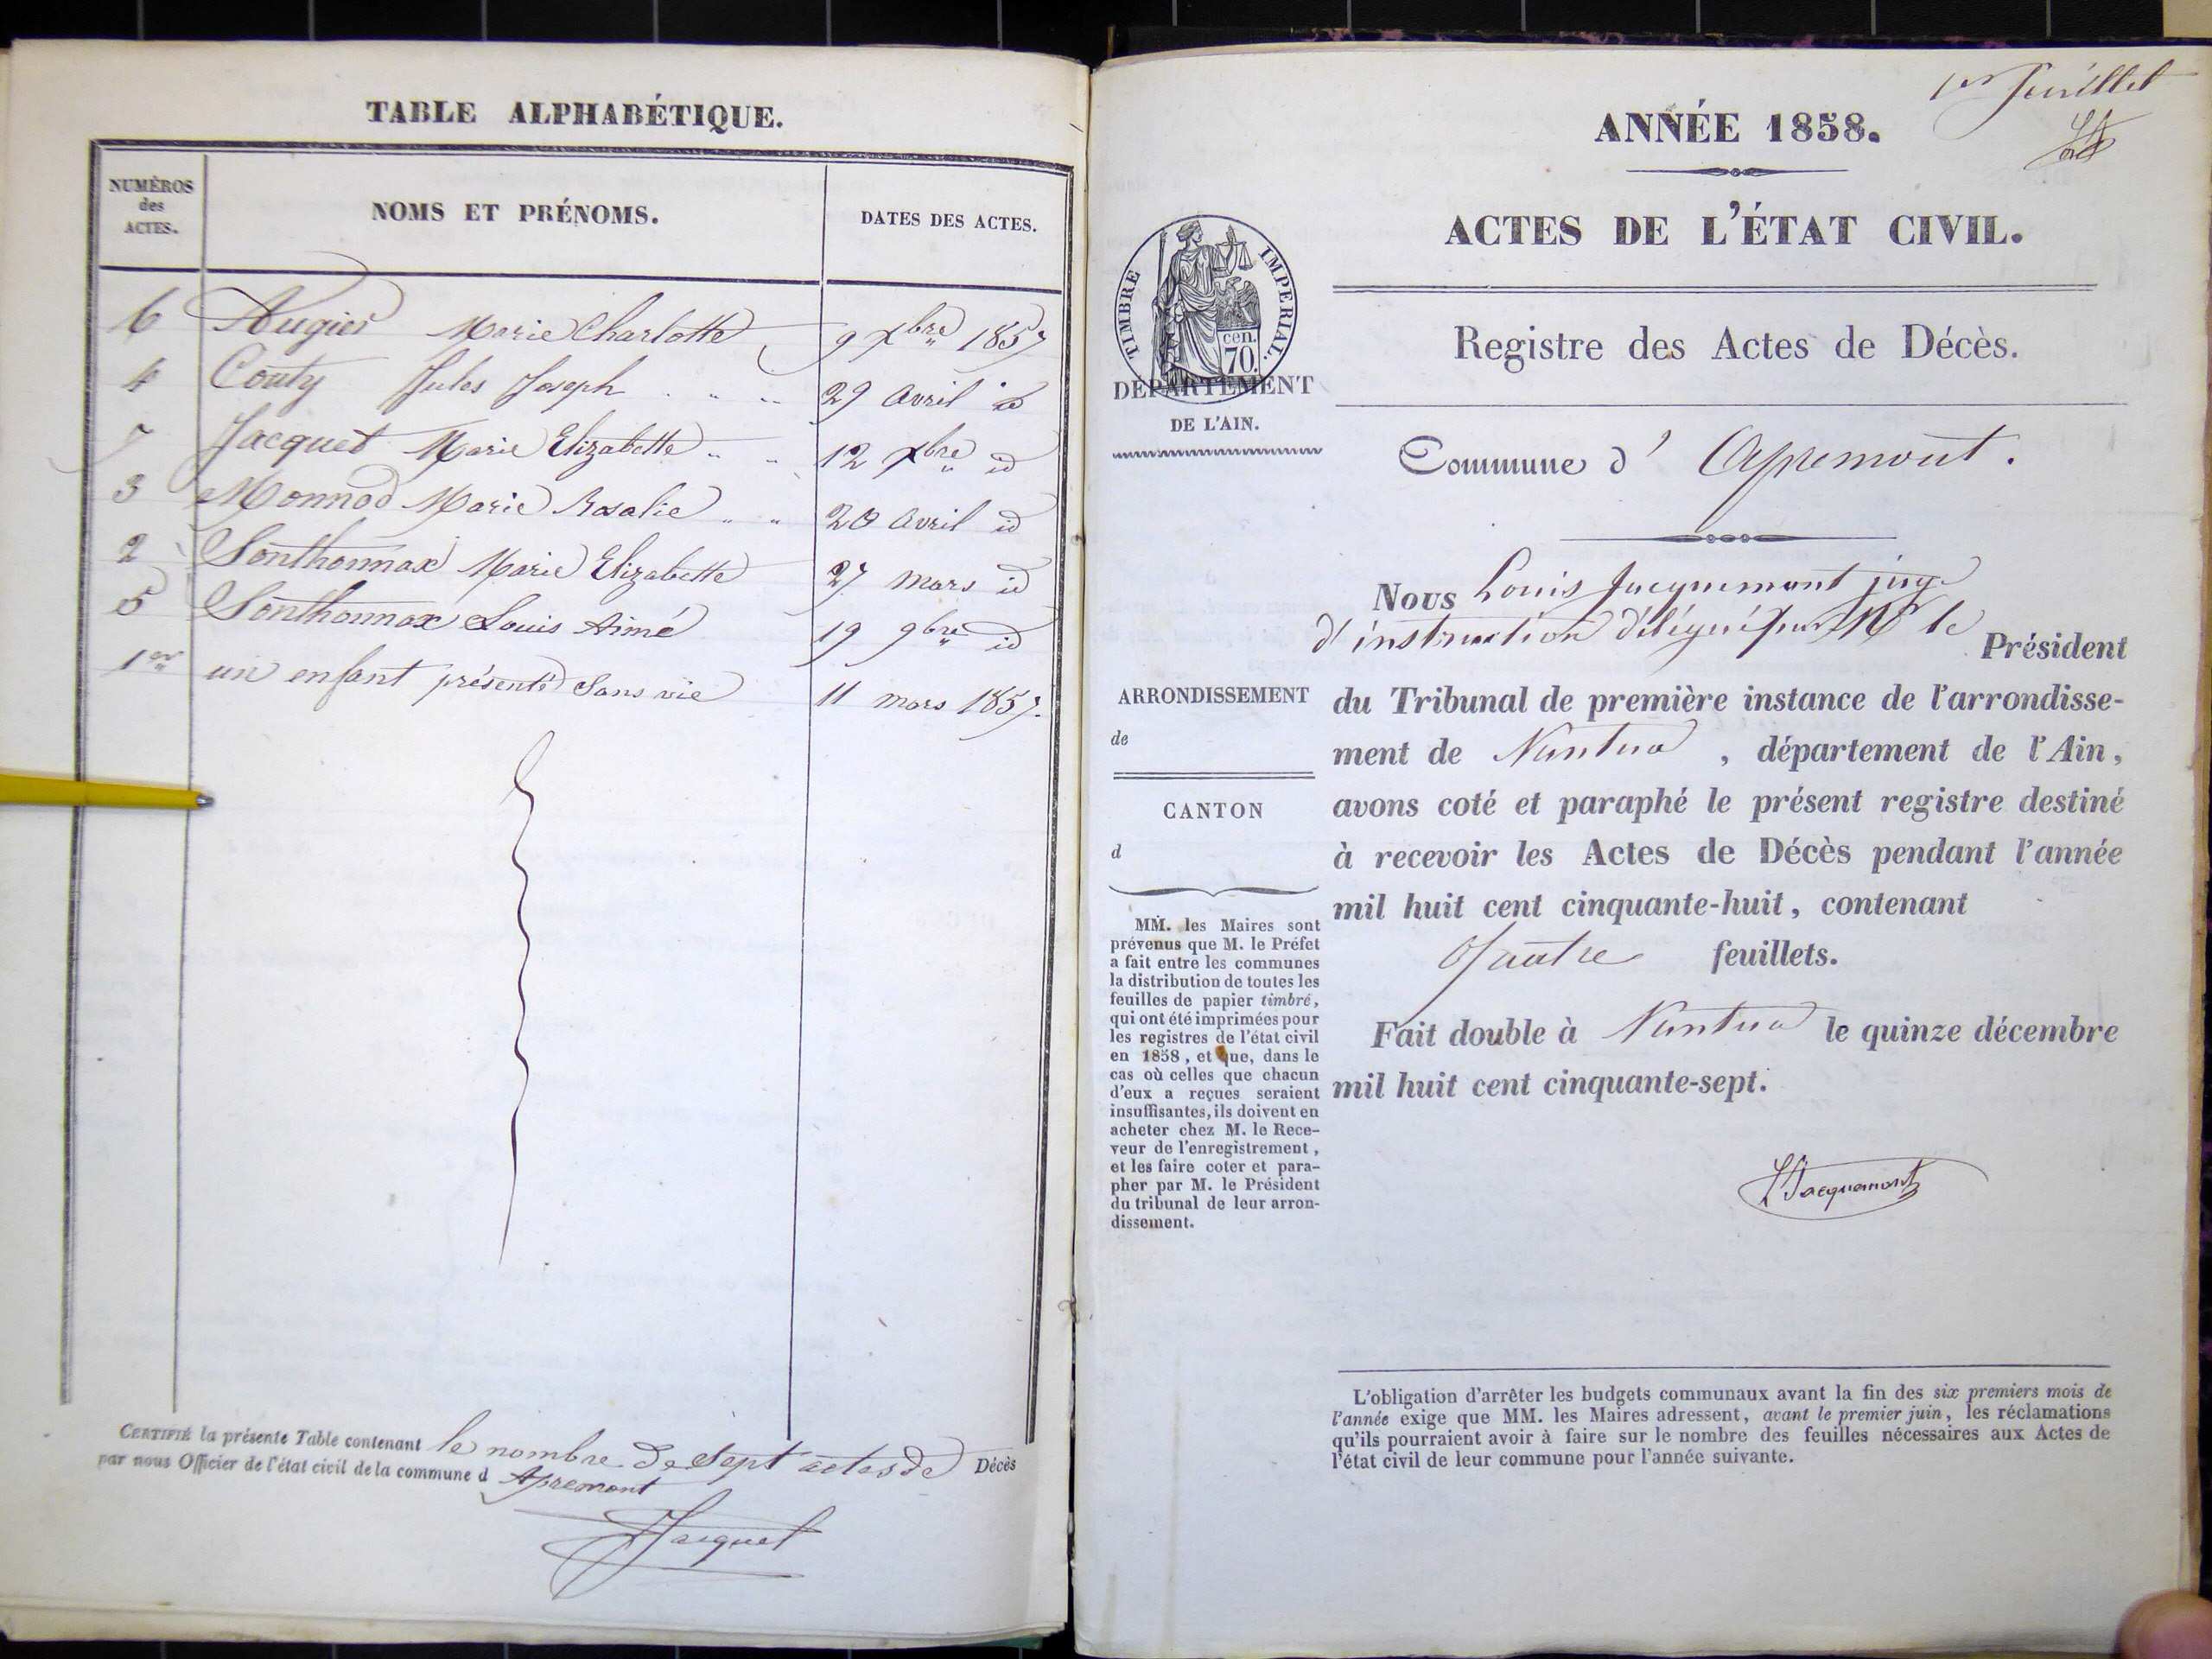 TABLE ALPHABÉTIQUE.
NUMÉROS des ACTES. NOMS ET PRÉNOMS. DATES DES ACTES.
6 Augier Marie Charlotte 9 Xbre 1857
4 Couty Jules Joseph 29 avril id
7 Jacquet Marie Elizabette 12 Xbre id
3 Monnod Marie Rosalie 20 avril id
2 Sonthonnax Marie Elizabette 27 mars id
5 Sonthonnax Louis Aimé 19 9bre id
1er un enfant présenté Sans vie 11 mars 1857.
CERTIFIÉ la présente Table contenant le nombre de Sept actes de Décès
par nous Officier de l'état civil de la commune d Apremont
Jacquet
1er feuillet
ANNÉE 1858.
ACTES DE L'ÉTAT CIVIL.
TIMBRE IMPERIAL.
cen.
70.
DÉPARTEMENT
DE L'AIN.
Registre des Actes de Décès.
Commune d' Apremont.
Nous Louis Jacquemont juge
d'instruction délégué par Mr le Président
ARRONDISSEMENT
de
CANTON
d
du Tribunal de première instance de l'arrondisse-
ment de Nantua, département de l'Ain,
avons coté et paraphé le présent registre destiné
à recevoir les Actes de Décès pendant l'année
mil huit cent cinquante-huit, contenant
feuillets.
Fait double à Nantua le quinze décembre
mil huit cent cinquante-sept.
LJacquemont
MM. les Maires sont
prévenus que M. le Préfet
a fait entre les communes
la distribution de toutes les
feuilles de papier timbré,
qui ont été imprimées pour
les registres de l'état civil
en 1858, et que, dans le
cas où celles que chacun
d'eux a reçues seraient
insuffisantes, ils doivent en
acheter chez M. le Rece-
veur de l'enregistrement,
et les faire coter et para-
pher par M. le Président
du tribunal de leur arron-
dissement.
L'obligation d'arrêter les budgets communaux avant la fin des six premiers mois de
l'année exige que MM. les Maires adressent, avant le premier juin, les réclamations
qu'ils pourraient avoir à faire sur le nombre des feuilles nécessaires aux Actes de
l'état civil de leur commune pour l'année suivante.